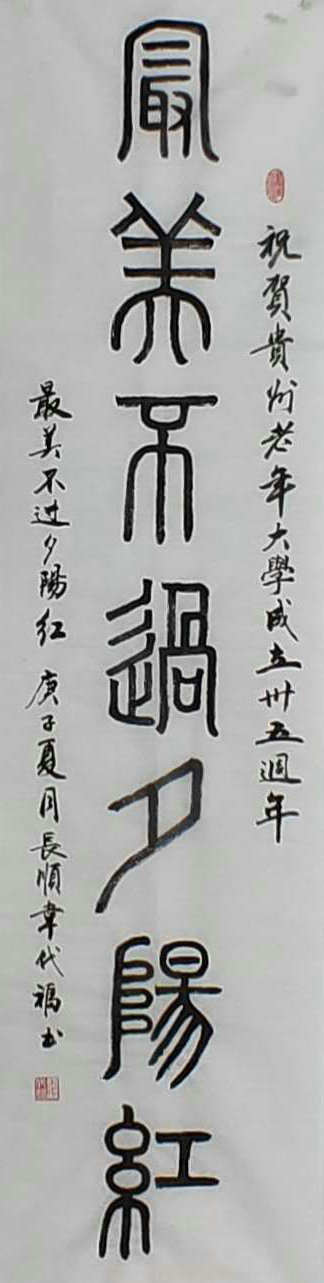 祝賀貴州老年大學成立卅五週年
最美不過夕陽紅
最美不过夕陽红 庚子夏月長順韋代福书